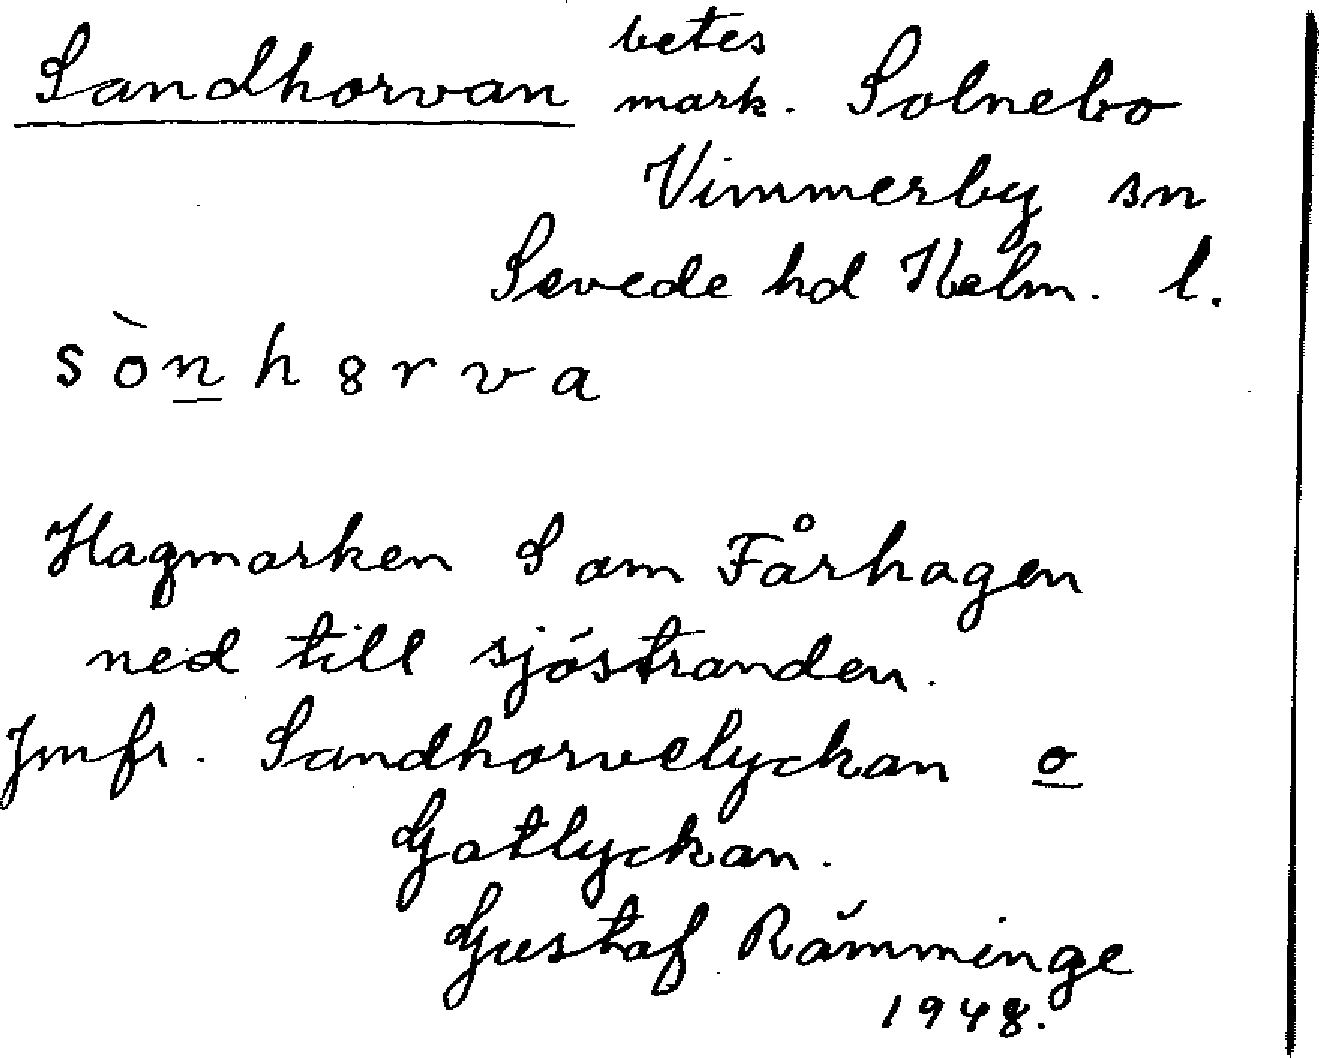 Sandhorvan betes
mark. Solnebo
Vimmerby sn
Sevede hd Kalm. l.
sònh8rva
Hagmarken S om Fårhagen
ned till sjöstranden.
Jmfr. Sandhorvelyckan o
Gatlyckan.
Gustaf Rämminge
1948.